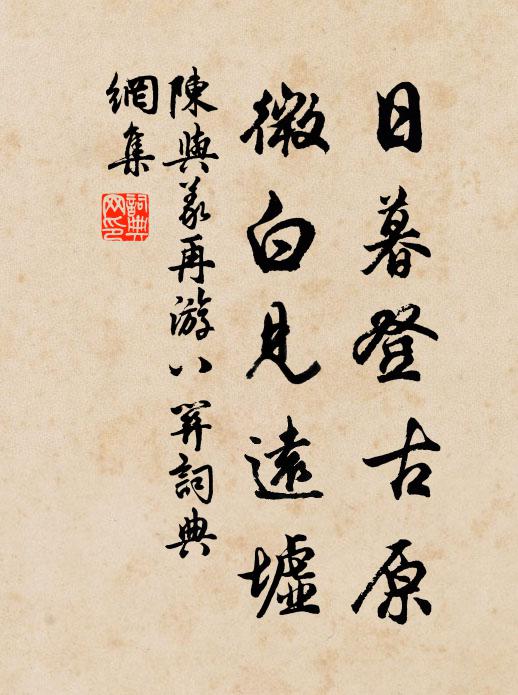 日暮登古原
微白見遠墟
陳與義再游八關詞典
網集
詞典网印